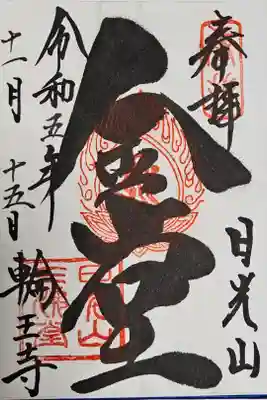 奉拝
日光山
金堂
令和五年
十一月 十五日
輪王寺
日光山